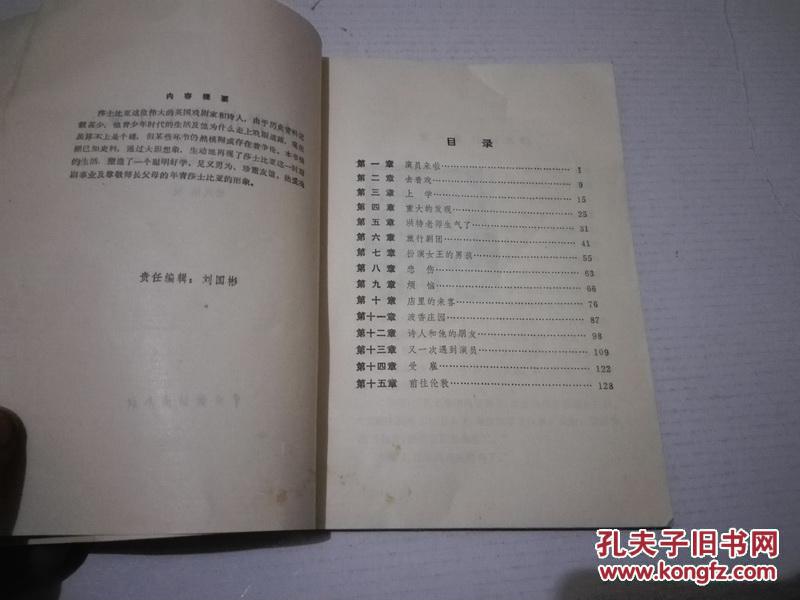 内容提要
莎士比亚这位伟大的英国戏剧家和诗人，由于历史资料记
载甚少，他青少年时代的生活及他为什么走上戏剧道路，现在
虽算不上是个谜，但某些环节仍然模糊或存在着争论。本书根
据已知史料，通过大胆想象，生动地再现了莎士比亚这一时期
的生活，塑造了一个聪明好学、见义勇为、珍重友谊、热爱戏
剧事业及尊敬师长父母的年青莎士比亚的形象。
责任编辑：刘国彬
目录
第一章 演员来啦 1
第二章 去看戏 9
第三章 上学 15
第四章 重大的发现 25
第五章 洪特老师生气了 31
第六章 旅行剧团 41
第七章 扮演女王的男孩 55
第八章 悲伤 63
第九章 烦恼 66
第十章 店里的来客 76
第十一章 波香庄园 87
第十二章 诗人和他的朋友 98
第十三章 又一次遇到演员 109
第十四章 受雇 122
第十五章 前往伦敦 128
孔夫子旧书网
www.kongfz.com